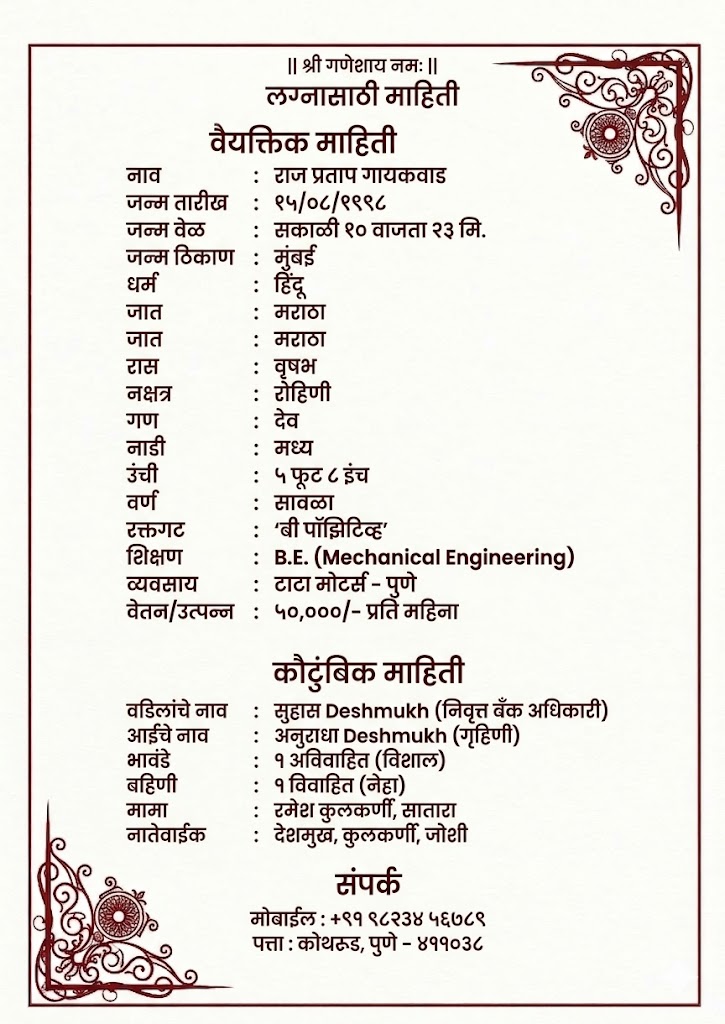 || श्री गणेशाय नमः ||
लग्नासाठी माहिती
वैयक्तिक माहिती
नाव : राज प्रताप गायकवाड
जन्म तारीख : १५/०८/१९९८
जन्म वेळ : सकाळी १० वाजता २३ मि.
जन्म ठिकाण : मुंबई
धर्म : हिंदू
जात : मराठा
जात : मराठा
रास : वृषभ
नक्षत्र : रोहिणी
गण : देव
नाडी : मध्य
उंची : ५ फूट ८ इंच
वर्ण : सावळा
रक्तगट : ‘बी पॉझिटिव्ह’
शिक्षण : B.E. (Mechanical Engineering)
व्यवसाय : टाटा मोटर्स - पुणे
वेतन/उत्पन्न : ५०,०००/- प्रति महिना
कौटुंबिक माहिती
वडिलांचे नाव : सुहास Deshmukh (निवृत्त बँक अधिकारी)
आईचे नाव : अनुराधा Deshmukh (गृहिणी)
भावंडे : १ अविवाहित (विशाल)
बहिणी : १ विवाहित (नेहा)
मामा : रमेश कुलकर्णी, सातारा
नातेवाईक : देशमुख, कुलकर्णी, जोशी
संपर्क
मोबाईल : +९१ ९८२३४ ५६७८९
पत्ता : कोथरूड, पुणे - ४११०३८